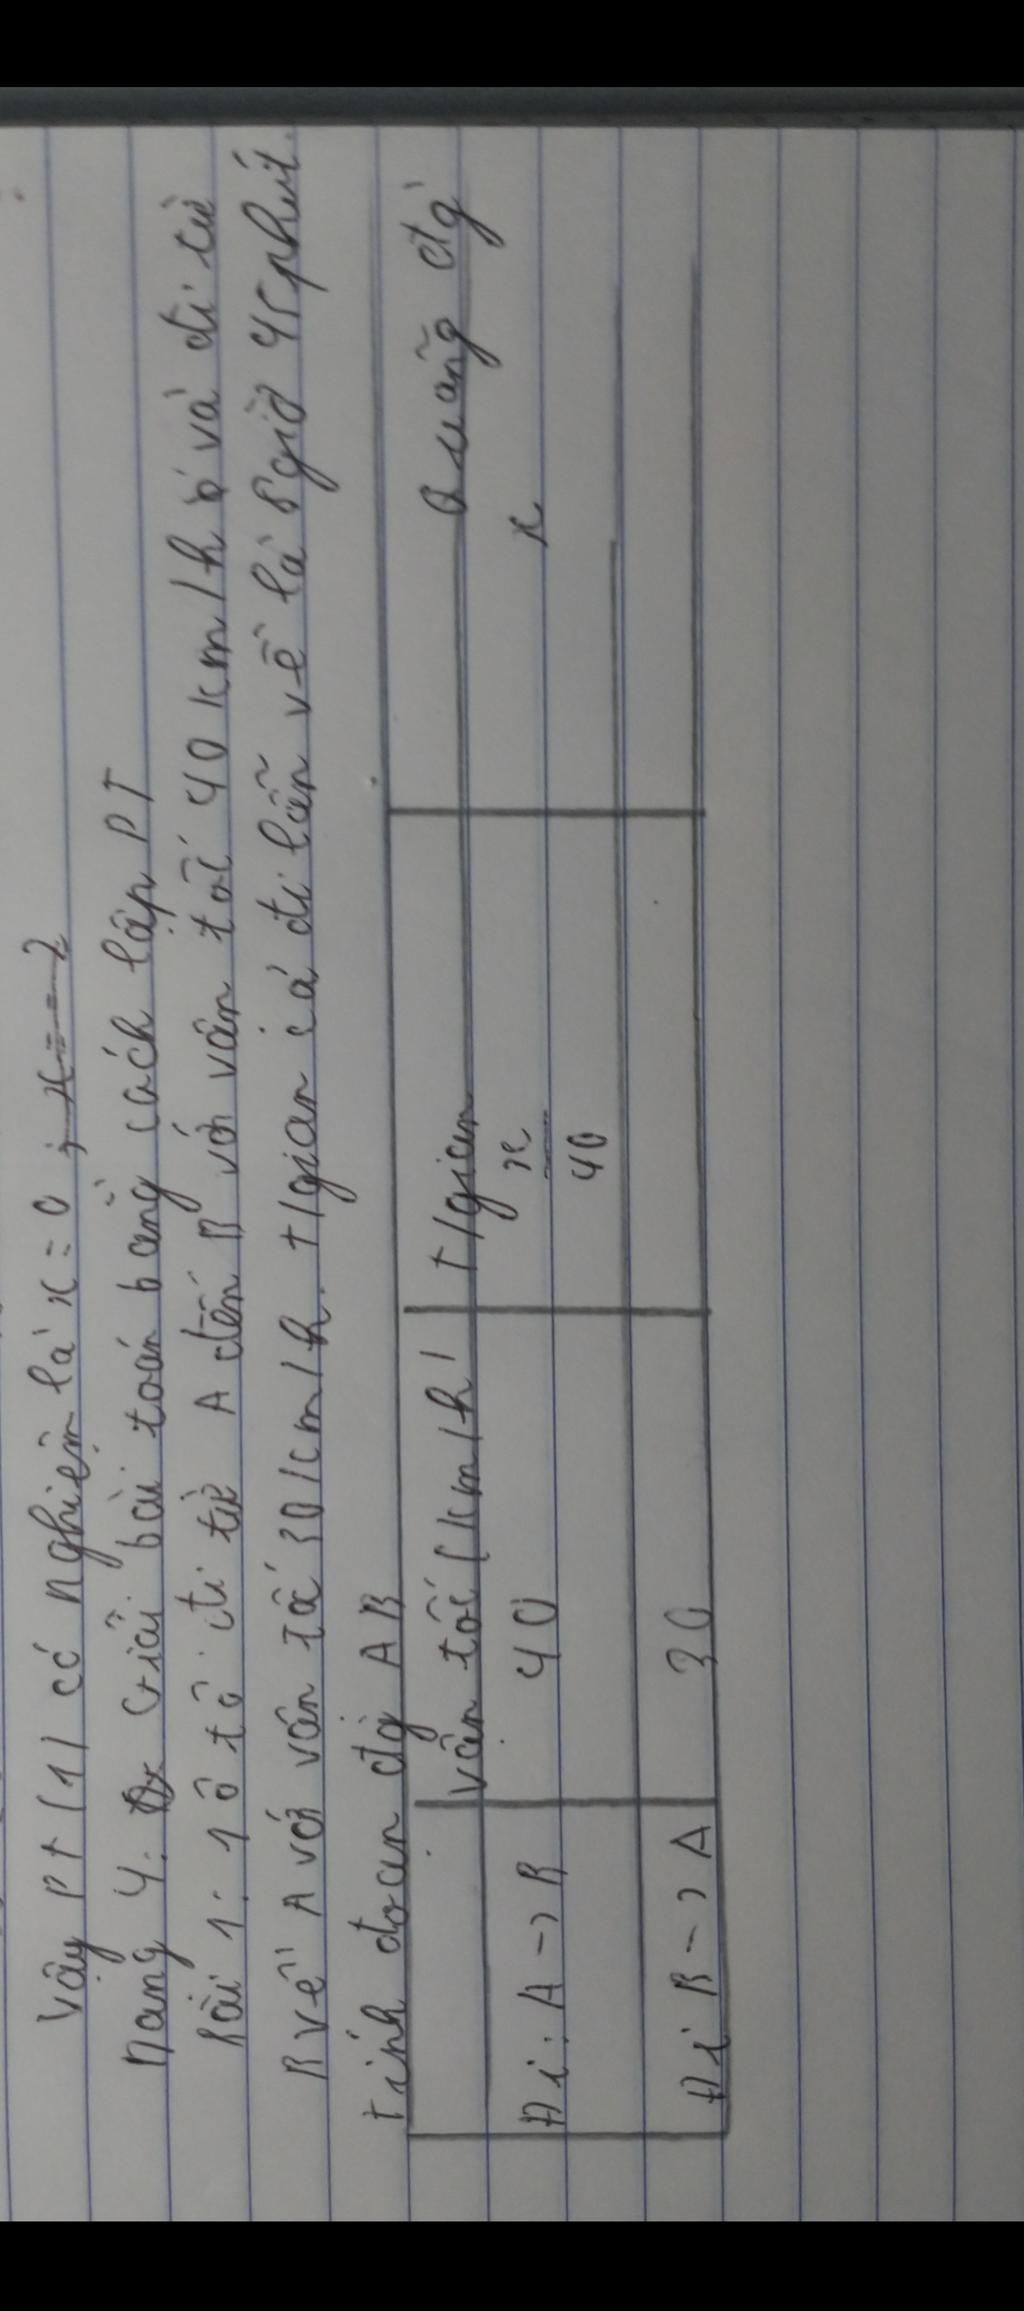 Vậy pt (1) có nghiệm là x = 0 ; x = - 2
Dạng 4: Giải bài toán bằng cách lập PT
Bài 1: 1 ô tô đi từ A đến B với vận tốc 40 km/h và đi từ
B về A với vận tốc 30 km/h. t/gian cả đi lẫn về là 8 giờ 45 phút.
tính đoạn đg AB
vận tốc (km/h) t/gian Quãng đg
Đi: A -> B 40 x/40 x
Đi B -> A 30